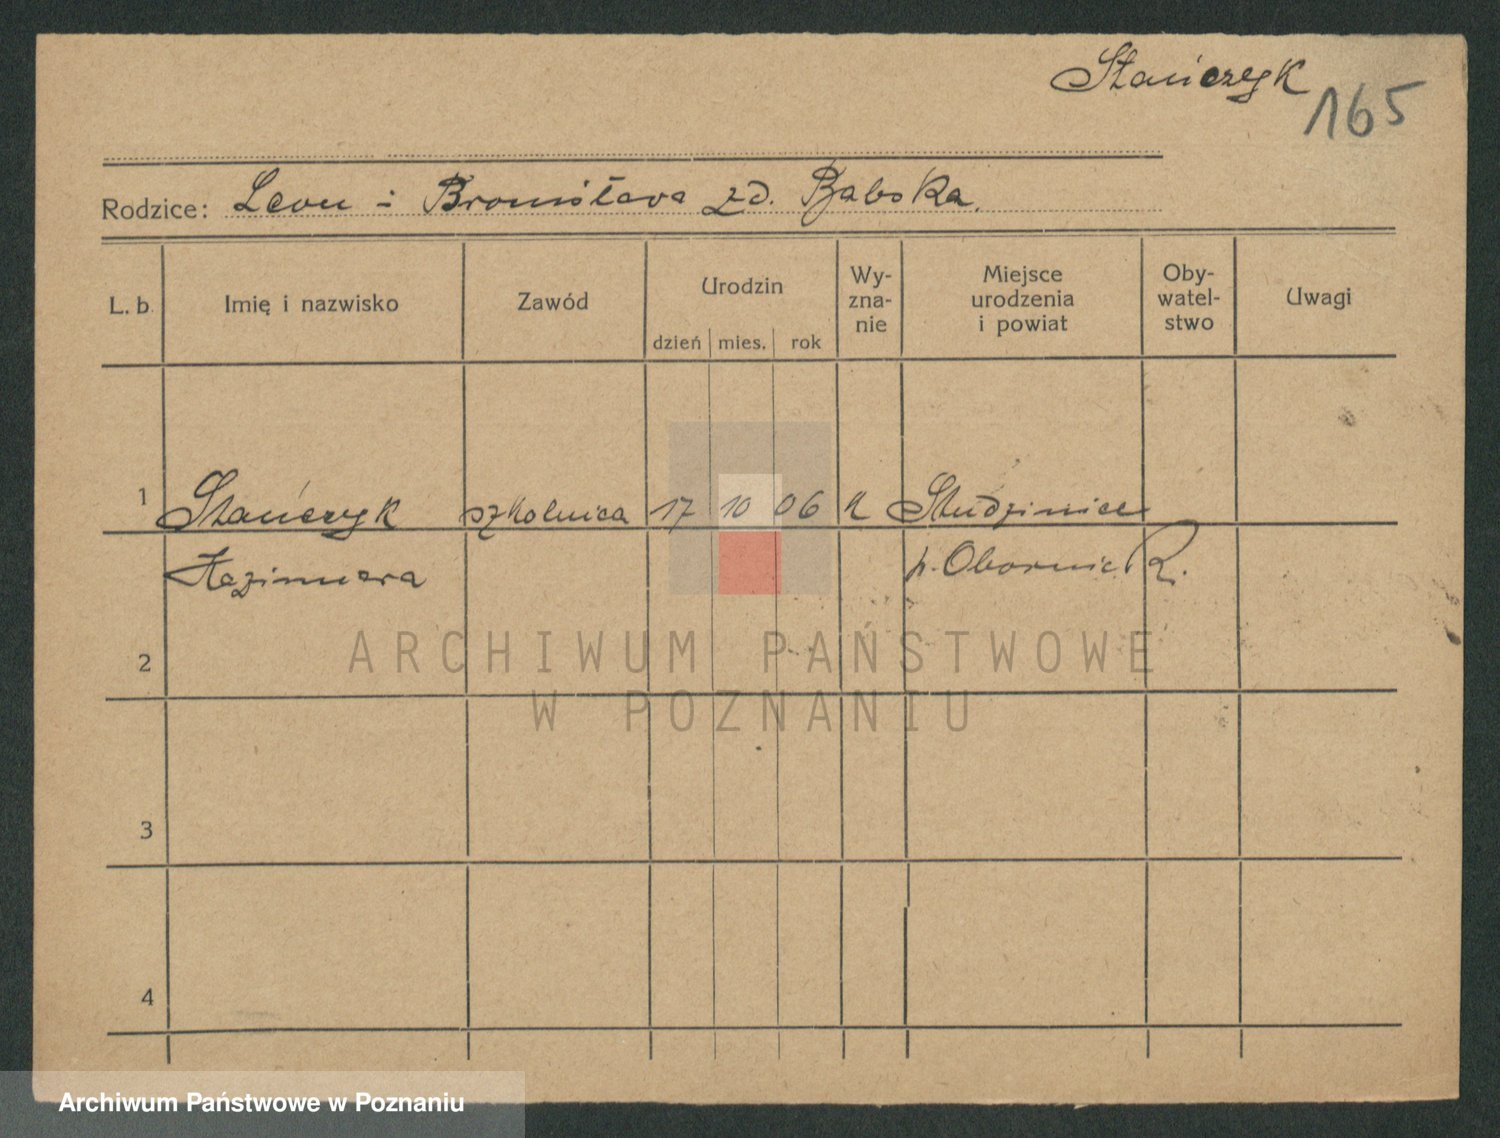 Stańczyk
165
Rodzice: Leon i Bronisława zd. Bąbska.
L. b. Imię i nazwisko Zawód Urodzin dzień mies. rok Wy-zna-nie Miejsce urodzenia i powiat Oby-watel-stwo Uwagi
1 Stańczyk szkolnica 17 10 06 k Studzieniec
Kazimiera p. Obornic R.
2
ARCHIWUM PAŃSTWOWE
W POZNANIU
3
4
Archiwum Państwowe w Poznaniu